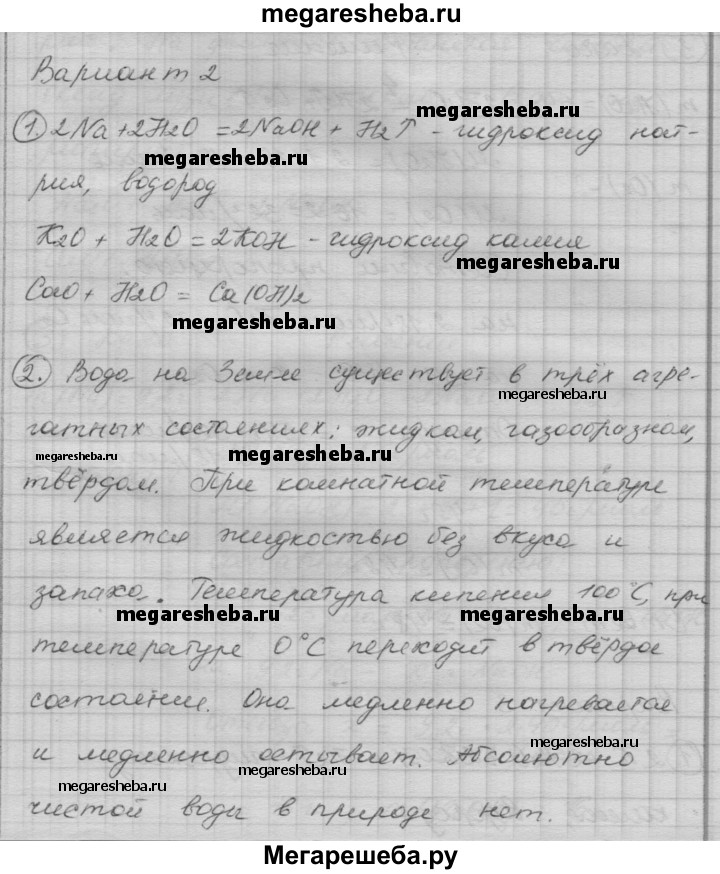 megaresheba.ru
Вариант 2
megaresheba.ru
1. 2Na + 2H2O = 2NaOH + H2↑ - гидроксид нат-
megaresheba.ru
рия, водород
K2O + H2O = 2KOH - гидроксид калия
megaresheba.ru
CaO + H2O = Ca(OH)2
megaresheba.ru
2. Вода на Земле существует в трёх агре-
megaresheba.ru
гатных состояниях: жидком, газообразном,
megaresheba.ru megaresheba.ru
твёрдом. При комнатной температуре
является жидкостью без вкуса и
запаха. Температура кипения 100°C, при
megaresheba.ru megaresheba.ru
температуре 0°C переходит в твёрдое
состояние. Она медленно нагревается
megaresheba.ru
и медленно остывает. Абсолютно
megaresheba.ru megaresheba.ru
чистой воды в природе нет.
Мегарешеба.ру